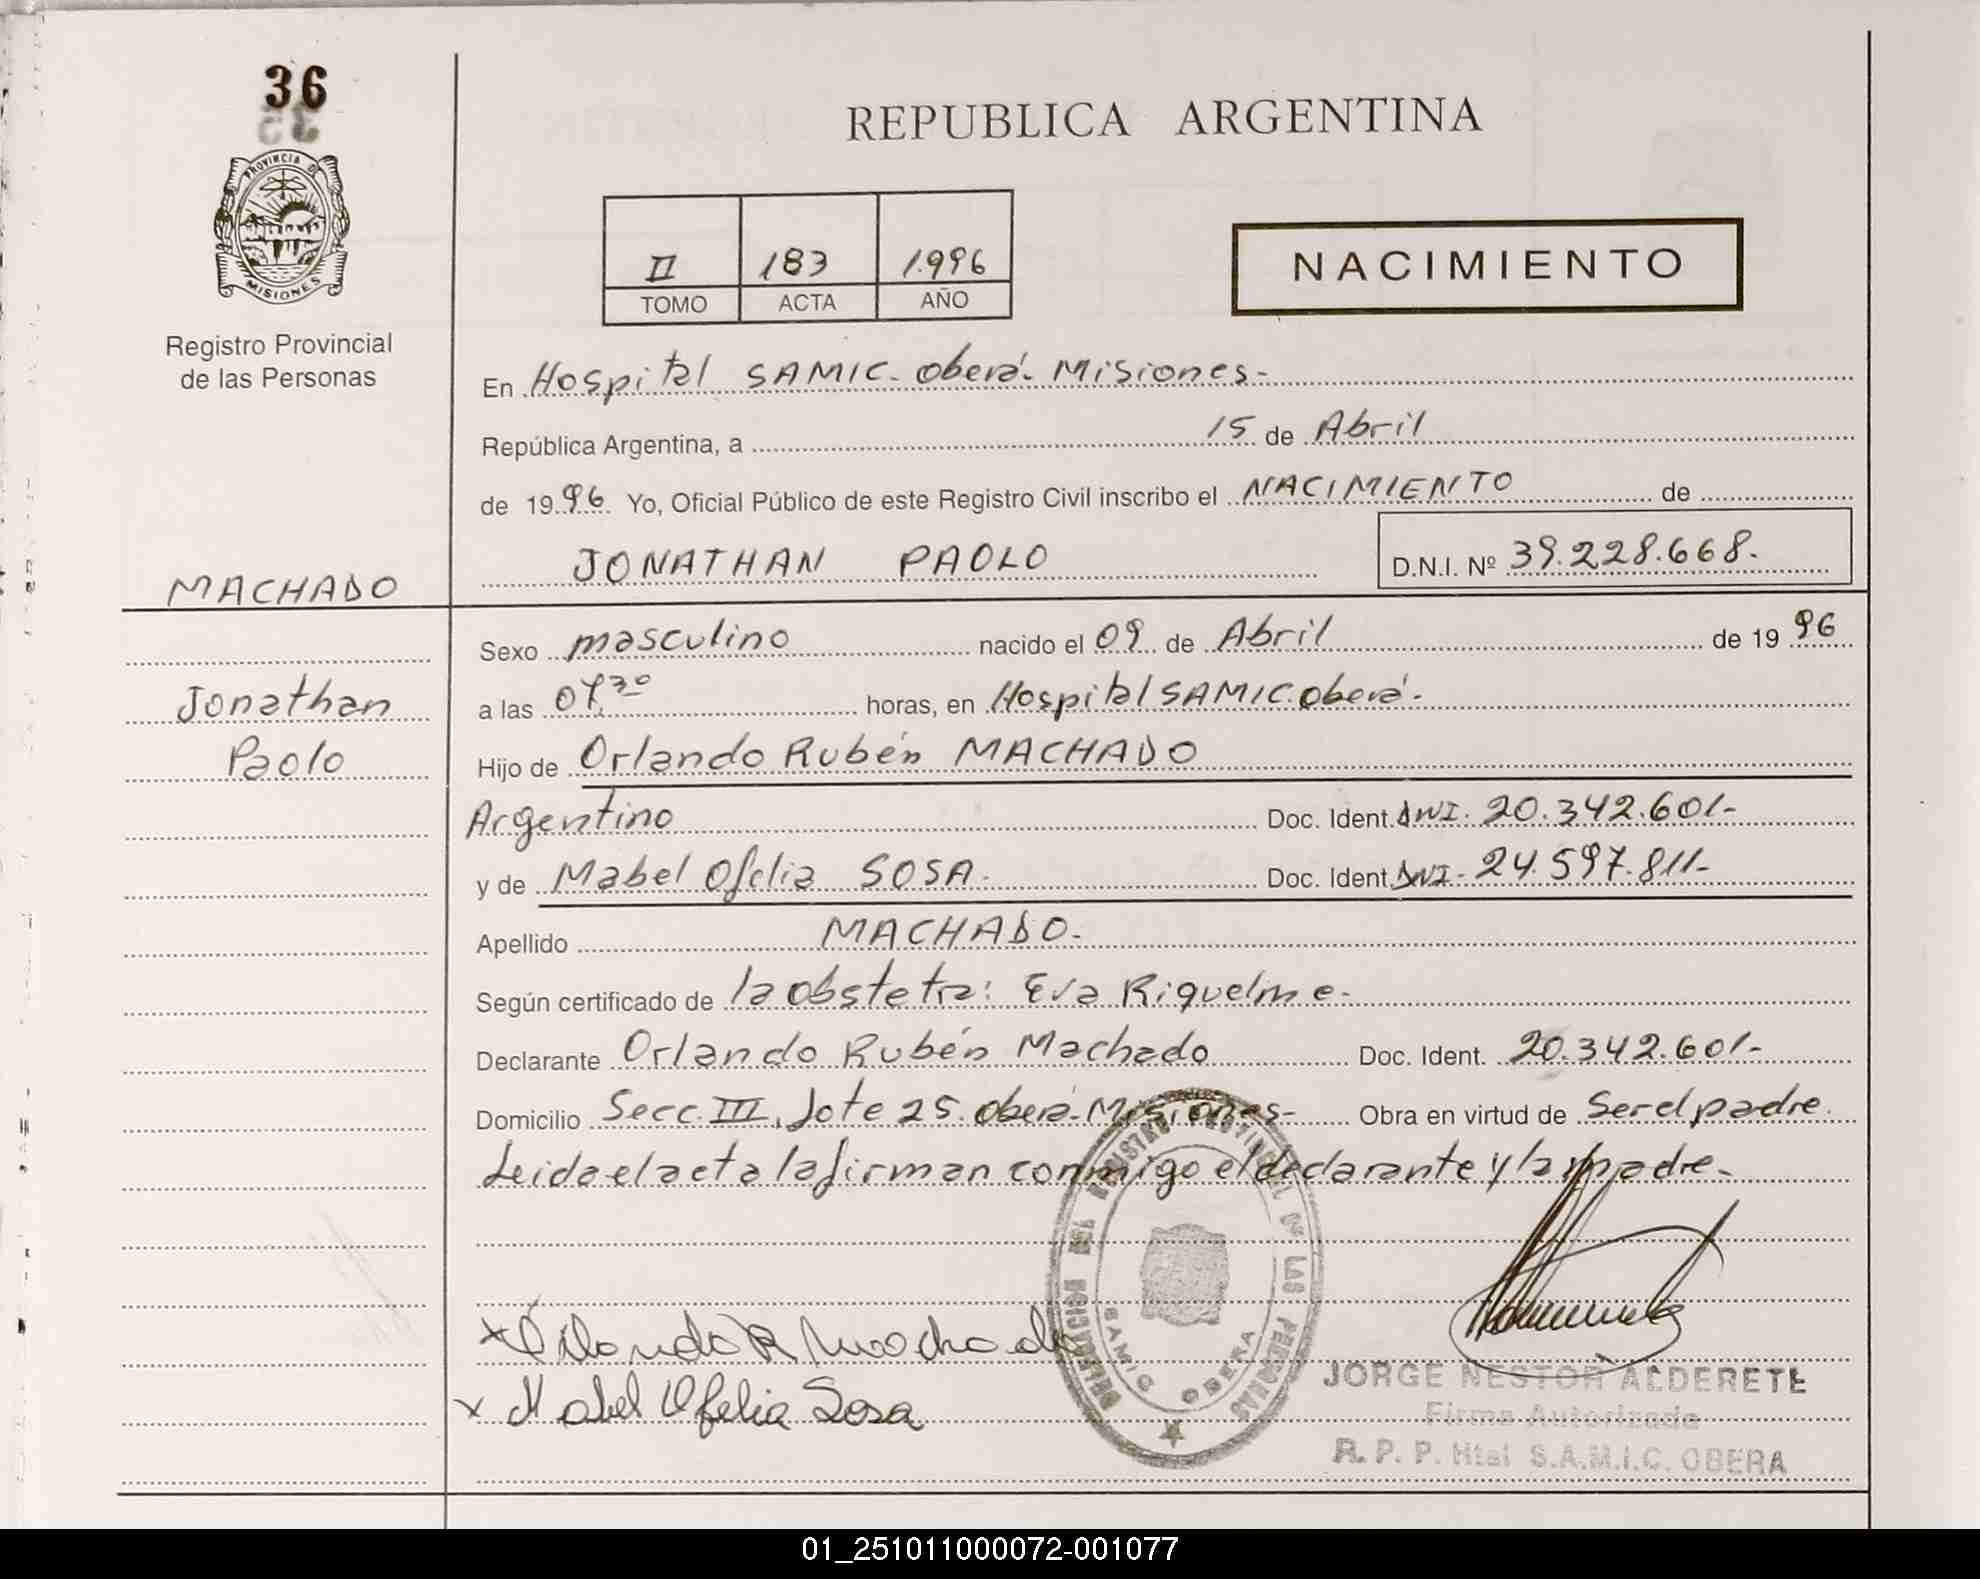 36
PROVINCIA DE
MISIONES
Registro Provincial
de las Personas
REPUBLICA ARGENTINA
II 183 1.996
TOMO ACTA AÑO
NACIMIENTO
En Hospital SAMIC. Oberá. Misiones-
República Argentina, a 15 de Abril
de 1996. Yo, Oficial Público de este Registro Civil inscribo el NACIMIENTO de
JONATHAN PAOLO D.N.I. Nº 39.228.668.
MACHADO
Sexo masculino nacido el 09 de Abril de 1996
Jonathan
a las 07,30 horas, en Hospital SAMIC. Oberá.
Paolo
Hijo de Orlando Rubén MACHADO
Argentino Doc. Ident. DNI. 20.342.601-
y de Mabel Ofelia SOSA. Doc. Ident. DNI- 24.597.811-
Apellido MACHADO.
Según certificado de la obstetra: Eva Riquelme.
Declarante Orlando Rubén Machado Doc. Ident. 20.342.601-
Domicilio Secc. III, lote 25. Oberá-Misiones- Obra en virtud de Ser el padre.
Leida el acta la firman conmigo el declarante y la madre-
DELEGACION DEL REGISTRO PROVINCIAL DE LAS PERSONAS
SAMIC OBERA
x Orlando R Machado
x Mabel Ofelia Sosa
JORGE NESTOR ALDERETE
Firma Autorizada
R. P. P. Htal S.A.M.I.C. OBERA
01_251011000072-001077